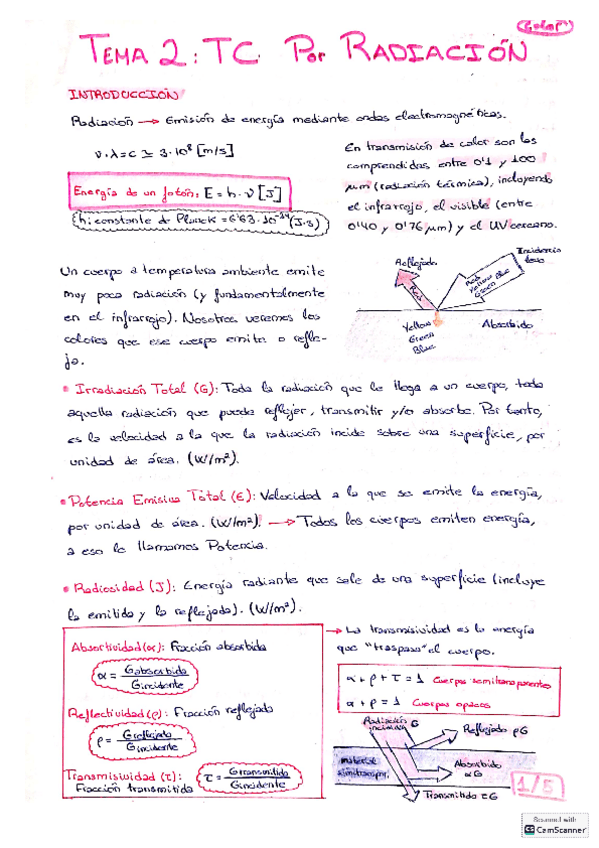 (Calor)
TEMA 2: TC. Por RADIACIÓN
INTRODUCCIÓN
Radiación → Emisión de energía mediante ondas electromagnéticas.
ν·λ=c ≃ 3·10⁸ [m/s]
Energía de un fotón: E = h·ν [J]
h: constante de Planck = 6'63·10⁻³⁴ (J·s)
En transmisión de calor son las
comprendidas entre 0'1 y 100
μm (radiación térmica), incluyendo
el infrarrojo, el visible (entre
0'40 y 0'76 μm) y el UV cercano.
Un cuerpo a temperatura ambiente emite
muy poca radiación (y fundamentalmente
en el infrarrojo). Nosotros veremos los
colores que ese cuerpo emite o refle-
ja.
Reflejado
Red
Incidencia
Red
Yellow Blue
Green
Yellow
Green
Blue
Absorbido
• Irradiación Total (G): Toda la radiación que le llega a un cuerpo, toda
aquella radiación que puede reflejar, transmitir y/o absorbe. Por tanto,
es la velocidad a la que la radiación incide sobre una superficie, por
unidad de área. (W/m²).
• Potencia Emisiva Total (E): Velocidad a la que se emite la energía,
por unidad de área. (W/m²). → Todos los cuerpos emiten energía,
a eso le llamamos Potencia.
• Radiosidad (J): Energía radiante que sale de una superficie (incluye
la emitida y la reflejada). (W/m²).
Absortividad(α): Fracción absorbida
α = Gabsorbida / Gincidente
Reflectividad(ρ): Fracción reflejada
ρ = Greflejada / Gincidente
Transmisividad (τ):
Fracción transmitida
τ = Gtransmitida / Gincidente
→ La transmisividad es la energía
que "traspasa" el cuerpo.
α + ρ + τ = 1 Cuerpos semitransparentes
α + ρ = 1 Cuerpos opacos
Radiación
incidente G
Reflejado ρG
material
semitranspar.
Absorbido
αG
Transmitido τG
1/5
Scanned with
CS CamScanner